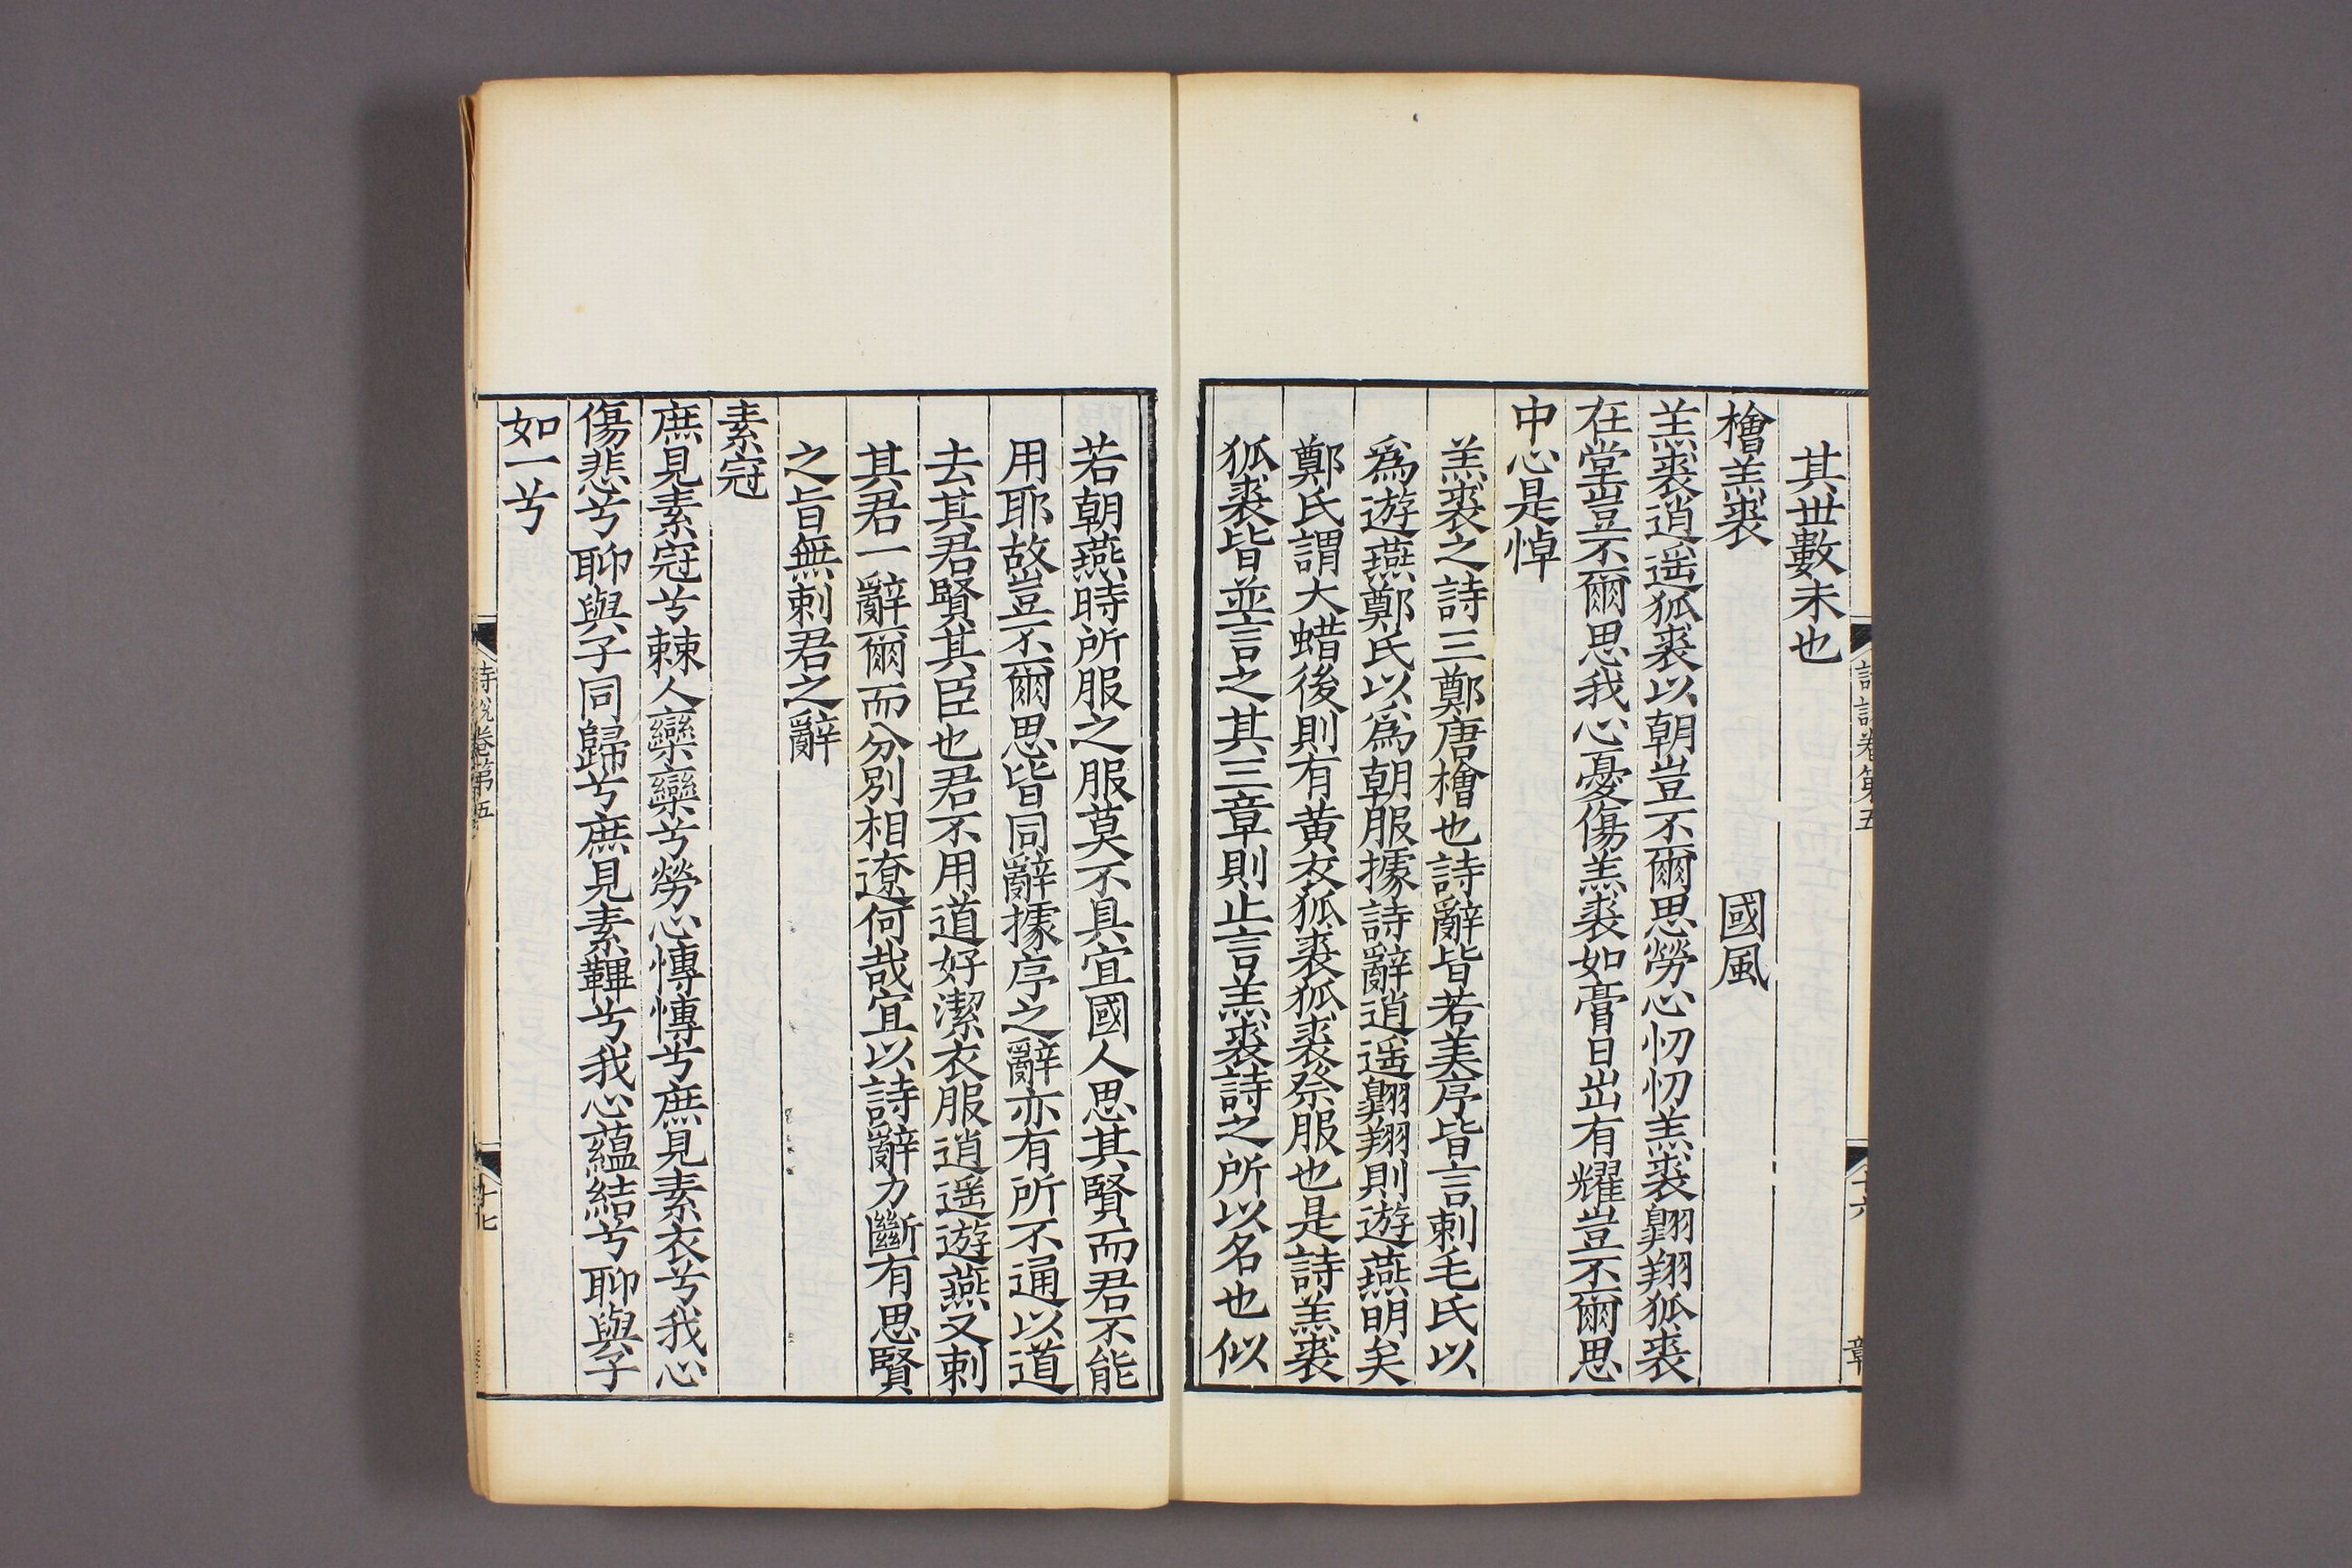 其世數未也
檜羔裘 國風
羔裘逍遥狐裘以朝豈不爾思勞心忉忉羔裘翱翔狐裘
在堂豈不爾思我心憂傷羔裘如膏日出有耀豈不爾思
中心是悼
羔裘之詩三鄭唐檜也詩辭皆若美序皆言刺毛氏以
爲遊燕鄭氏以爲朝服據詩辭逍遥翱翔則遊燕明矣
鄭氏謂大蜡後則有黄衣狐裘狐裘祭服也是詩羔裘
狐裘皆並言之其三章則止言羔裘詩之所以名也似
若朝燕時所服之服莫不具宜國人思其賢而君不能
用耶故豈不爾思皆同辭據序之辭亦有所不通以道
去其君賢其臣也君不用道好潔衣服逍遥遊燕又刺
其君一辭爾而分別相遼何哉宜以詩辭力斷有思賢
之旨無刺君之辭
素冠
庶見素冠兮棘人欒欒兮勞心慱慱兮庶見素衣兮我心
傷悲兮聊與子同歸兮庶見素韠兮我心蘊結兮聊與子
如一兮
詩說卷第五
十七